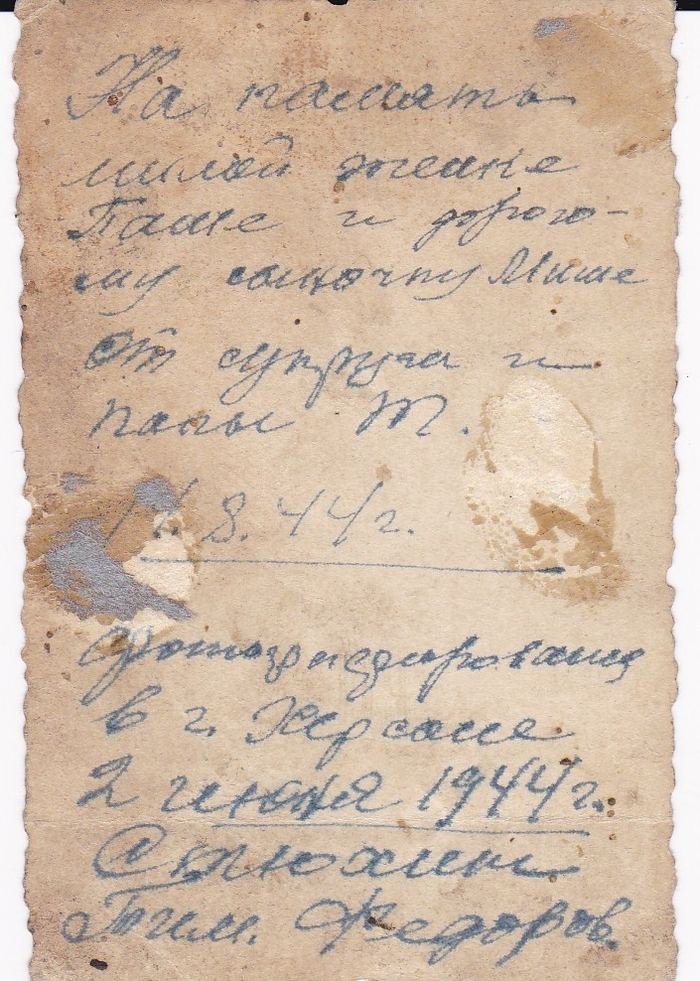 На память
милой жене
Паше и дорого-
му сыночку Мише
От супруга и
папы Т.
8. 44 г.
Фотографирован
в г. Херсоне
2 июня 1944 г.
Тим. Федоров.